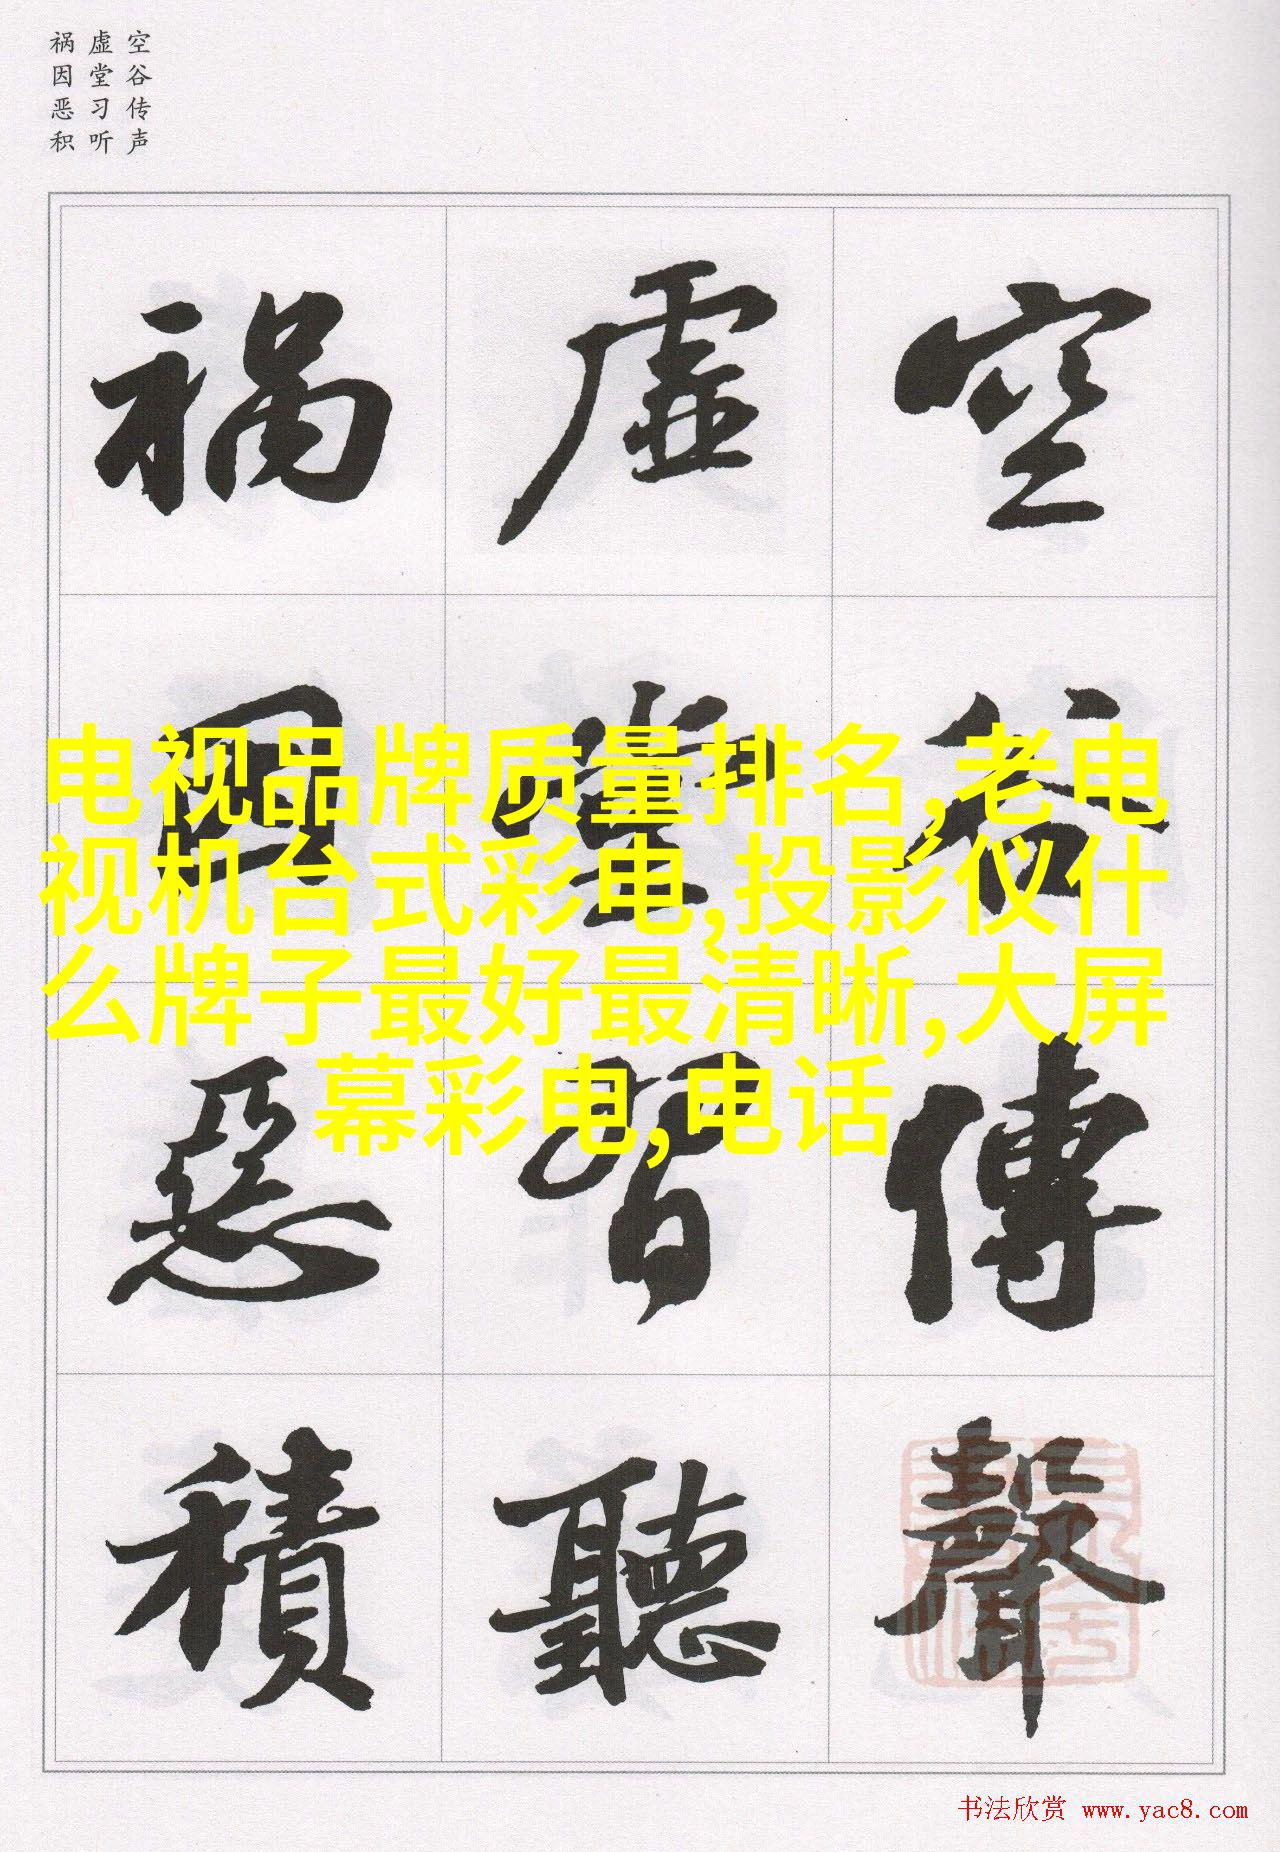 空谷传声
虚堂习听
祸因恶积
空谷傳聲
虛堂習聽
禍因惡積
电视品牌质量排名,老电
视机台式彩电,投影仪什
么牌子最好最清晰,大屏
幕彩电,电话
书法欣赏 www.yac8.com